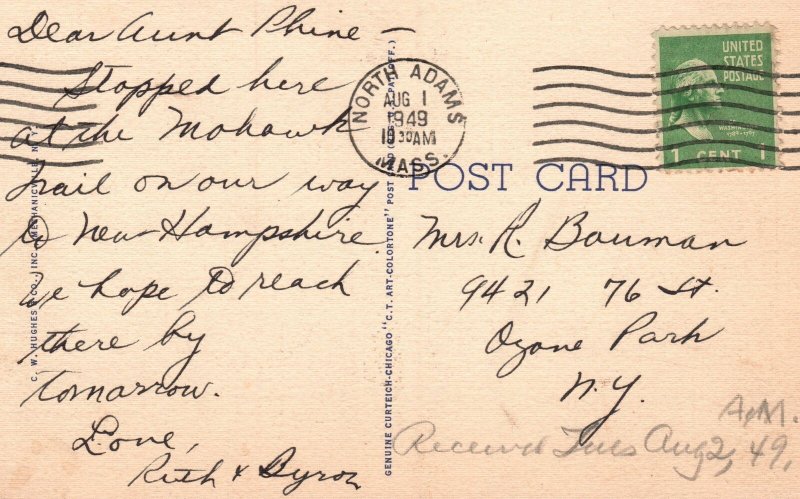 Dear Aunt Phine –
Stopped here
at the Mohawk
Trail on our way
to New-Hampshire.
We hope to reach
there by
tomorrow.
Love,
Ruth & Byron
C. W. HUGHES & CO., INC., MECHANICVILLE, N. Y.
GENUINE CURTEICH-CHICAGO "C. T. ART-COLORTONE" POST
OFF.)
NORTH ADAMS
AUG 1
1949
10 30 AM
MASS.
UNITED
STATES
POSTAGE
WASHINGTON
1 CENT 1
POST CARD
Mrs. R. Bauman
9421 76 St.
Ozone Park
N.Y.
A.M.
Received Tues Aug 2, 49,